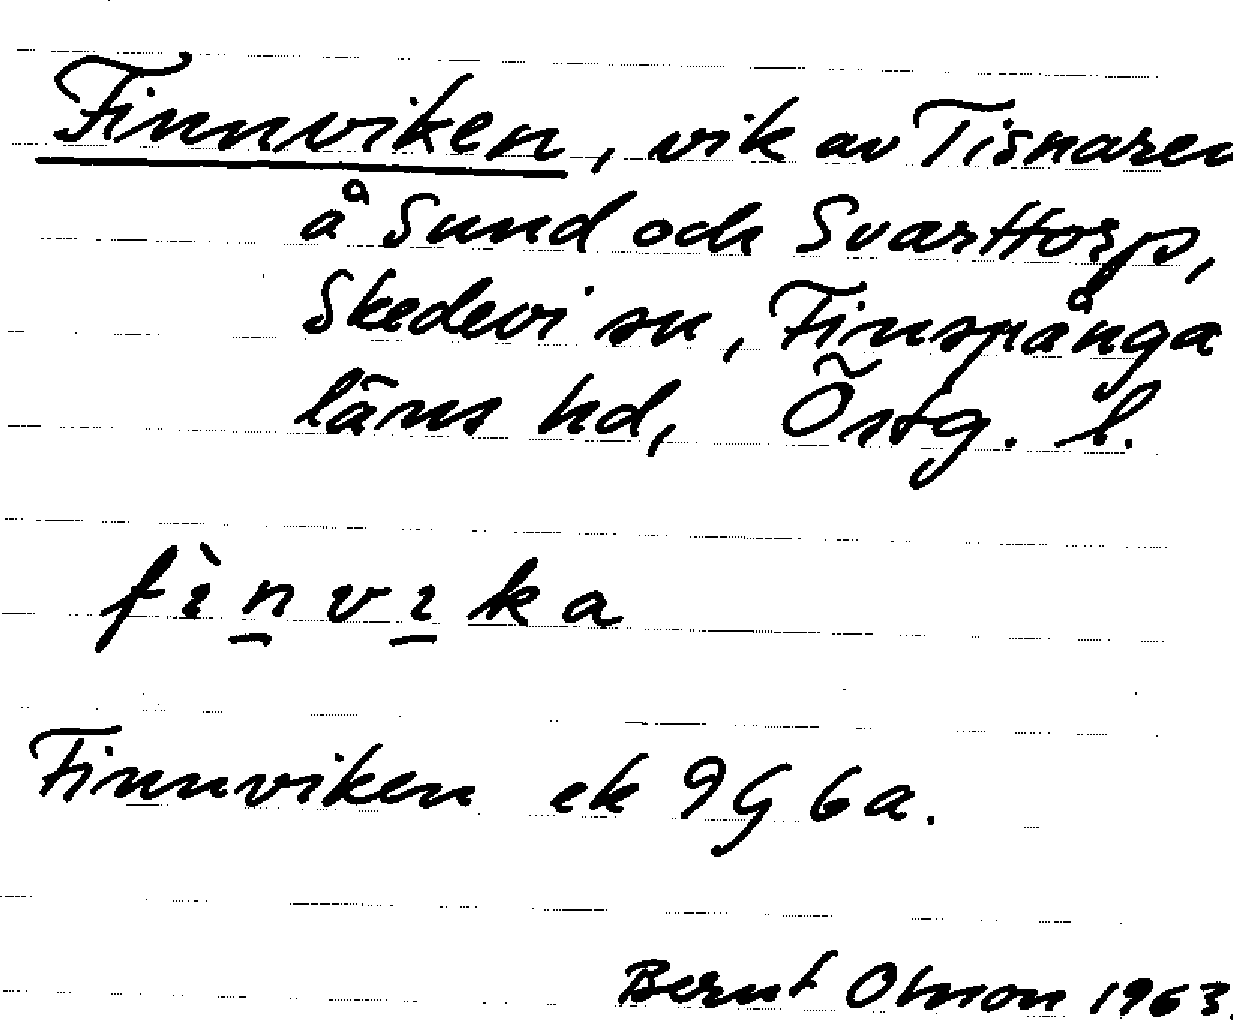 Finnviken, vik av Tisnaren
å Sund och Svarttorp,
Skedevi sn, Finspånga
läns hd, Östg. l.
fìnvika
Finnviken ek 9G 6a.
Bernt Olsson 1963.